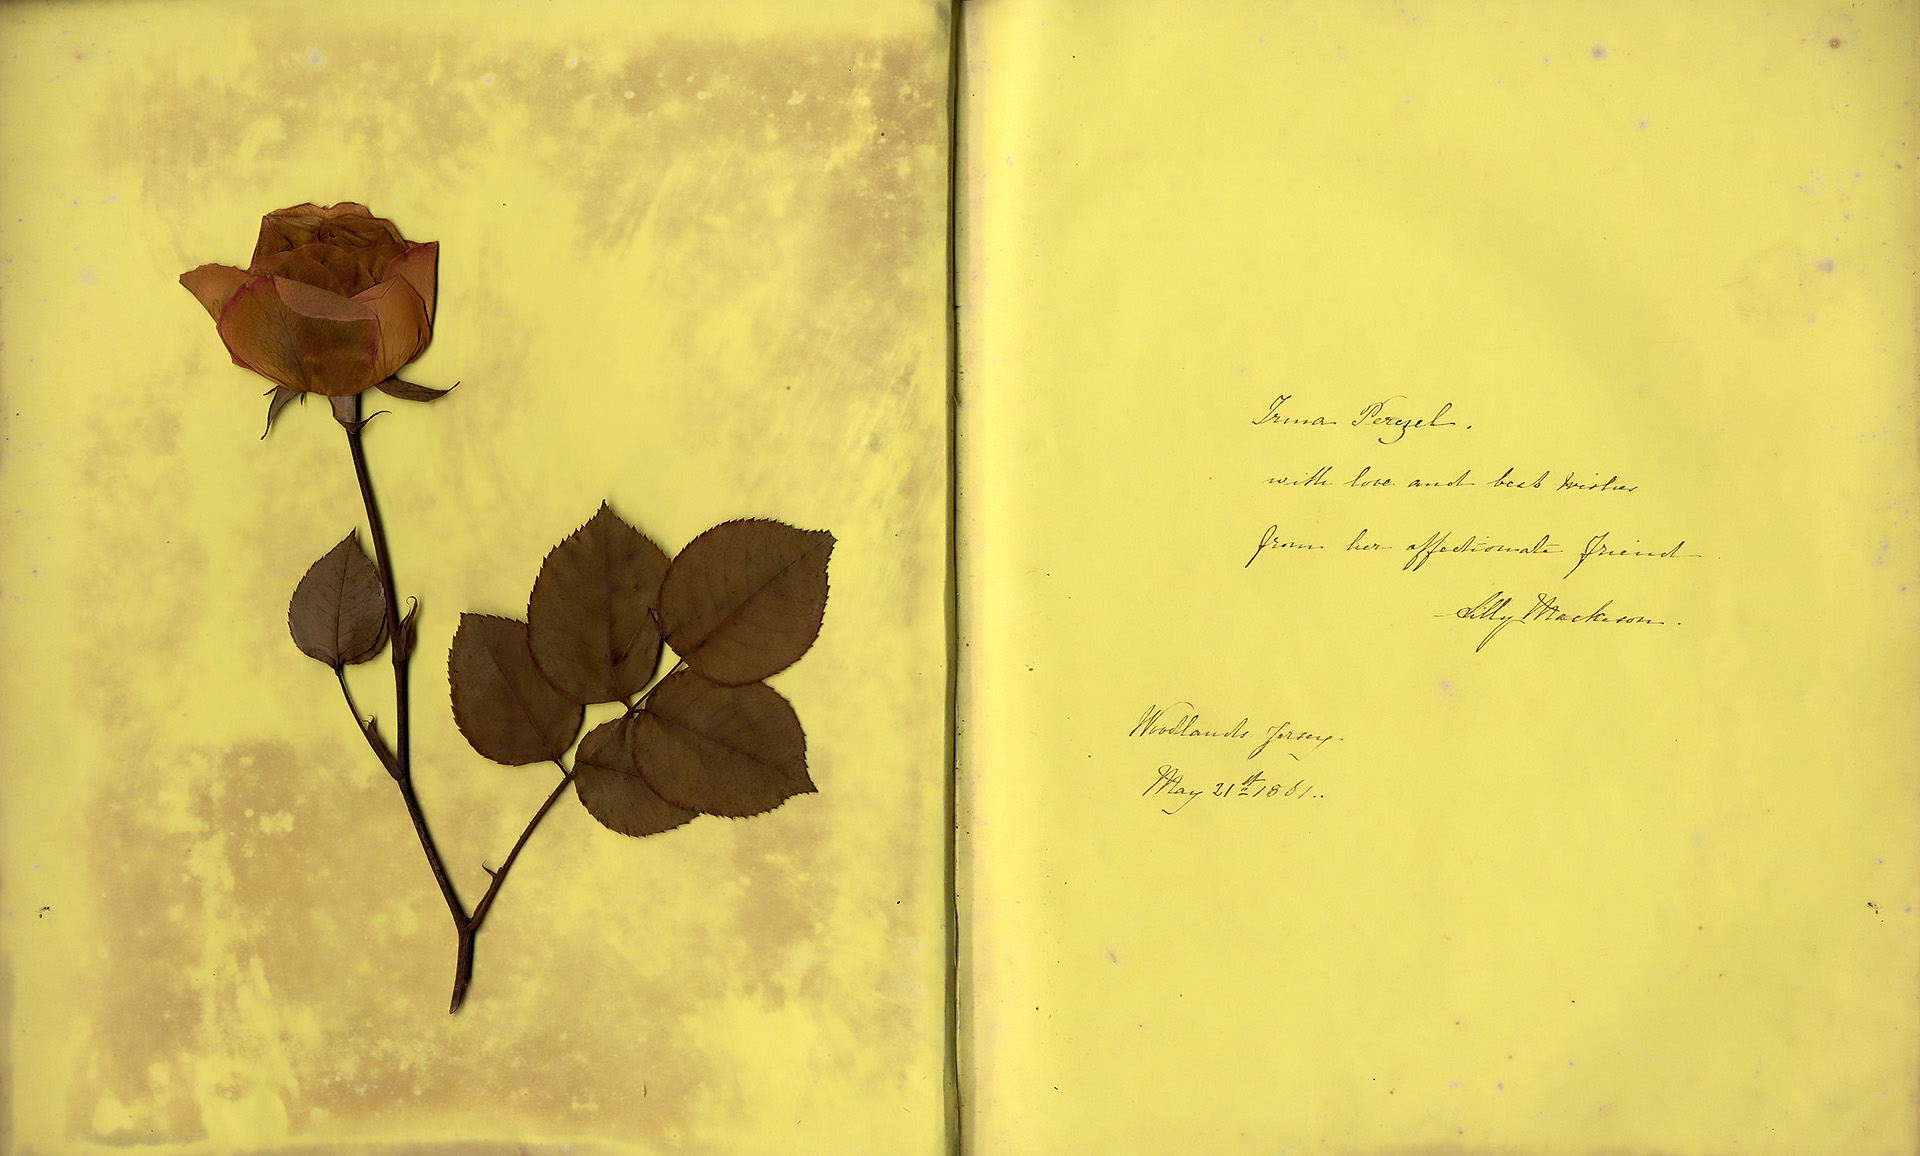 Irma Perczel.
with love and best wishes
from her affectionate friend
Lilly Mackeson.
Woodlands Jersey.
May 21st 1861..